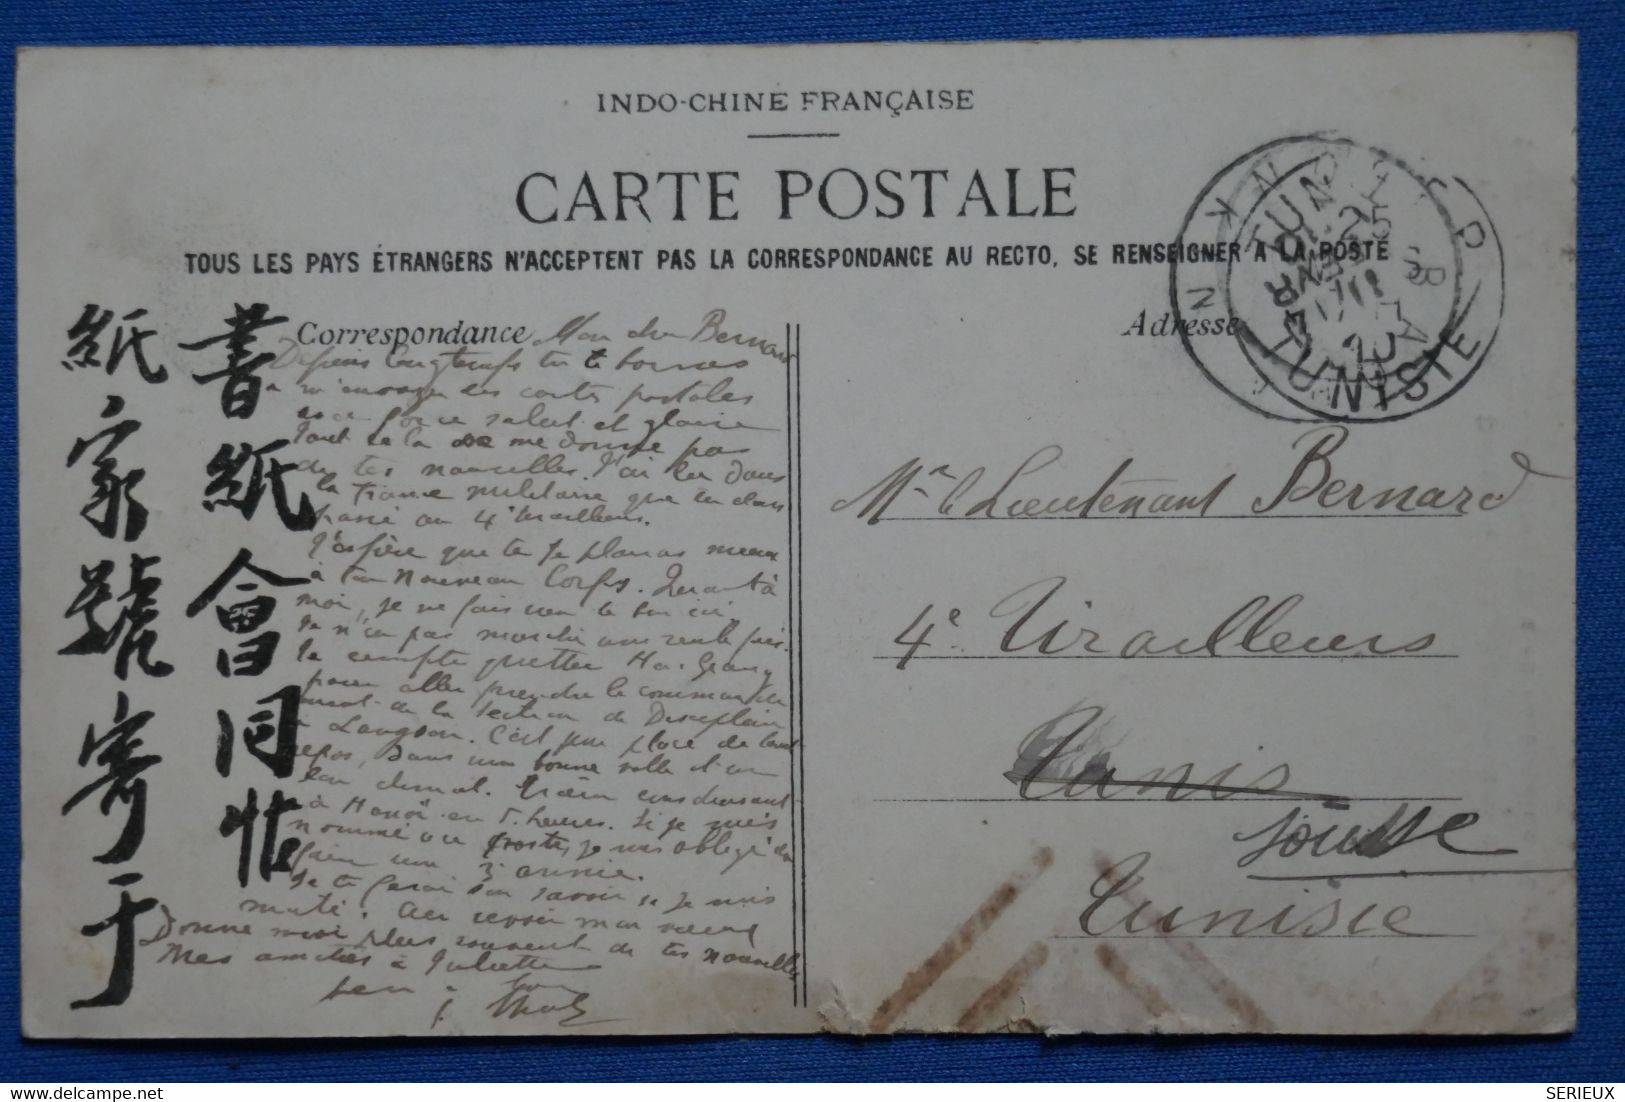 INDO-CHINE FRANÇAISE
CARTE POSTALE
TOUS LES PAYS ÉTRANGERS N'ACCEPTENT PAS LA CORRESPONDANCE AU RECTO, SE RENSEIGNER A LA POSTE
Correspondance
Adresse
Mon cher Bernard
Depuis longtemps tu te bornes
à m'envoyer des cartes postales
salut et gloire
Tout cela ne me donne pas
de tes nouvelles. J'ai lu dans
la France militaire que tu étais
passé au 4e tirailleurs.
J'espère que tu te plairas mieux
à ton nouveau Corps. Quant à
moi, je ne fais rien de bon ici.
Je compte quitter Ha-Giang
pour aller prendre le commande
ment de la section de Discipline
à Langson. C'est une place de tout
repos, dans une bonne ville et un
bon climat. Train conduisant
à Hanoï en 5 heures. Si je suis
nommé à ce poste, je suis obligé de
faire une 3e année.
Je te ferai savoir si je suis
muté. Au revoir mon vieux
Donne moi plus souvent de tes nouvelles
Mes amitiés à Juliette
書紙會同帖
紙家號寄于
Mr le Lieutenant Bernard
4e Tirailleurs
Tunis
Sousse
Tunisie
TUNISIE
SERIEUX